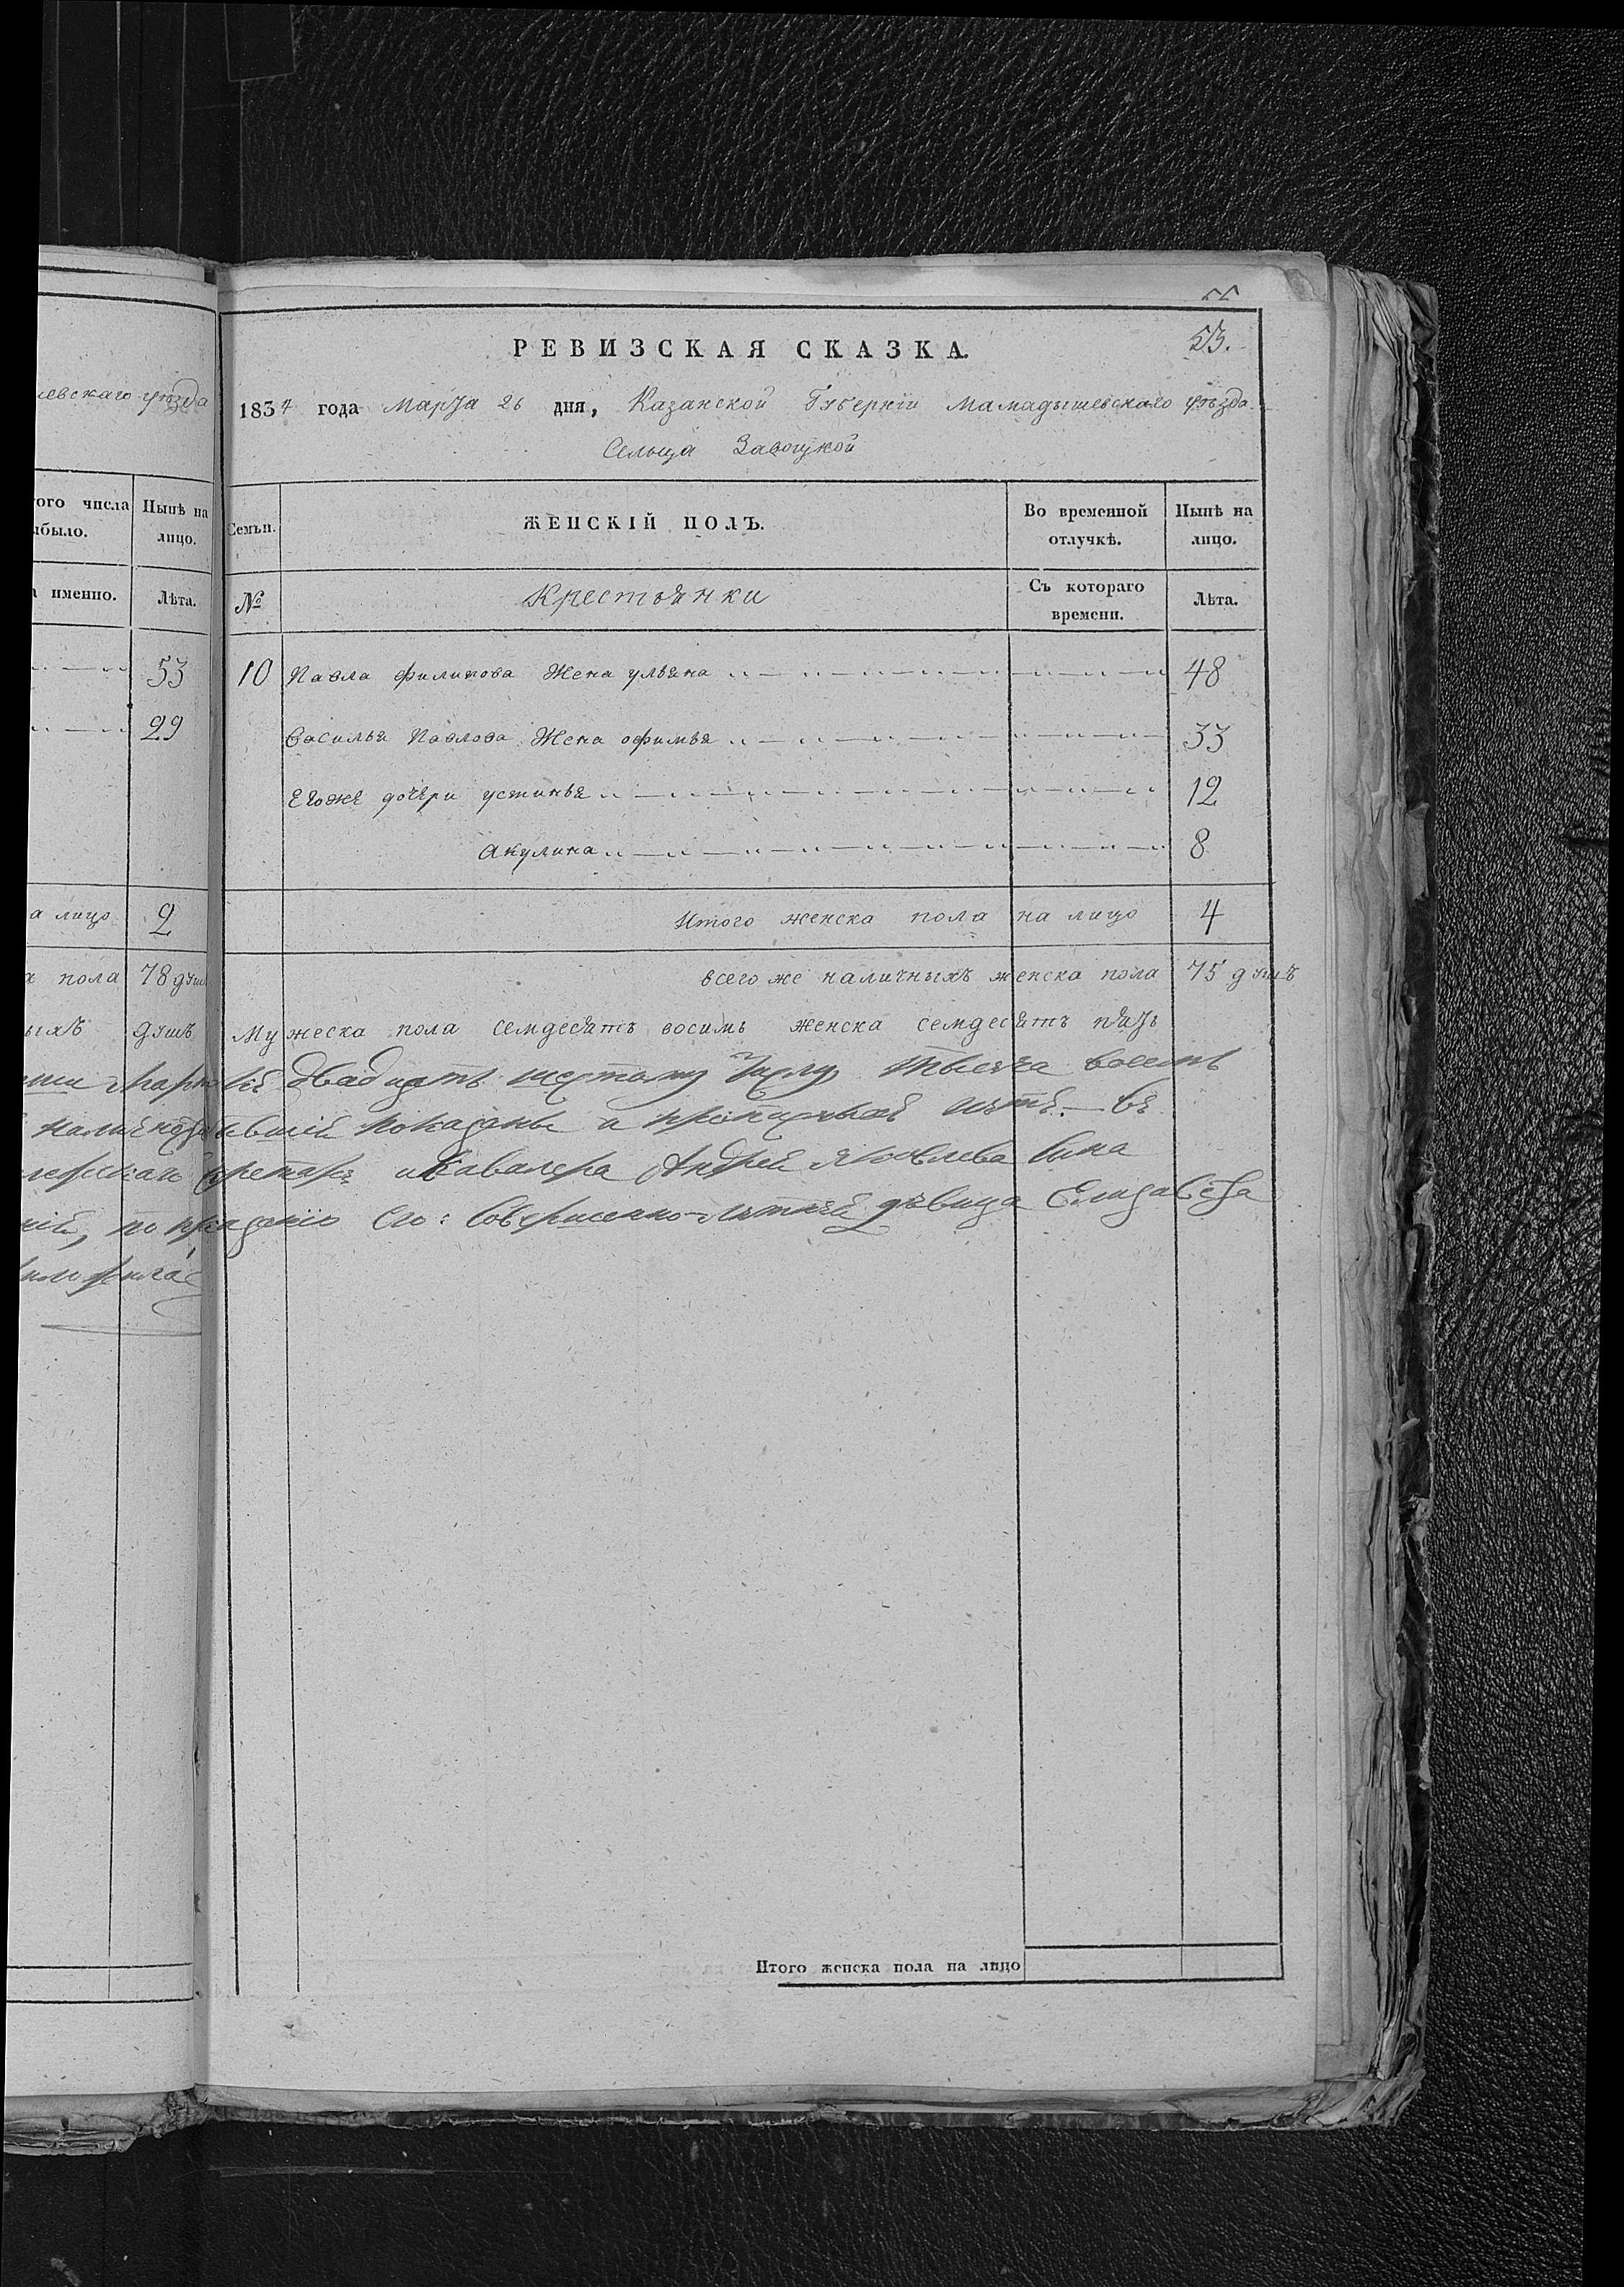 55
53.
РЕВИЗСКАЯ СКАЗКА.
левскаго уѣзда
1834 года Марта 26 дня, Казанской Губерніи Мамадышевскаго уѣзда
Сельца Завоцкой
того числа
ыбыло.
Нынѣ на
лицо.
Семьи.
ЖЕНСКІЙ ПОЛЪ.
Во временной
отлучкѣ.
Нынѣ на
лицо.
именно.
Лѣта.
№
Крестьянки
Съ котораго
времени.
Лѣта.
53
10 Павла филипова Жена ульяна 48
29
Василья Павлова Жена офимья 33
Егоже дочери устинья 12
акулина 8
а лицо 2
Итого женска пола на лицо 4
пола 78 душ
всего же наличныхъ женска пола 75 душъ
ыхъ душъ
Мужеска пола семдесятъ восимь женска семдесятъ пять
двадцать шестому числу тысяча восемь
показаны и прописныхъ нѣтъ. — въ
и Кавалера Андрея Яковлева сына
по приданію Его: Совершенно-лѣтней дѣвица Елизавета
Итого женска пола на лицо